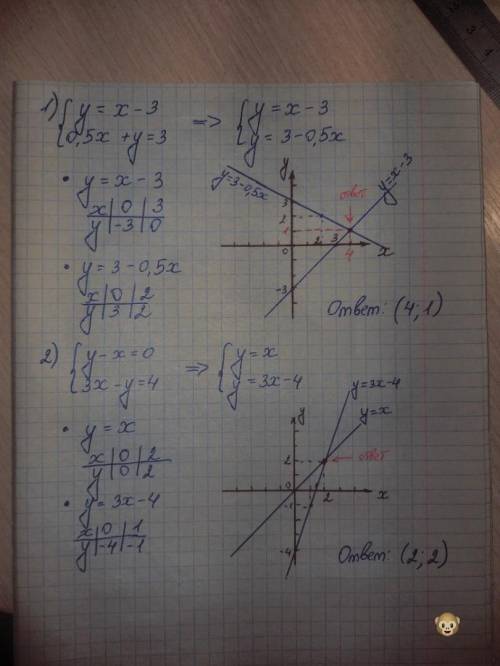 1) { y = x - 3 => { y = x - 3
0,5x + y = 3 y = 3 - 0,5x
• y = x - 3
x | 0 | 3
y | -3 | 0
• y = 3 - 0,5x
x | 0 | 2
y | 3 | 2
y
y = 3 - 0,5x
y = x - 3
ответ
3
2
1
0
2 3 4
x
-3
Ответ: (4; 1)
2) { y - x = 0 => { y = x
3x - y = 4 y = 3x - 4
• y = x
x | 0 | 2
y | 0 | 2
• y = 3x - 4
x | 0 | 1
y | -4 | -1
y = 3x - 4
y = x
y
2
ответ
0
2
x
-1
-4
Ответ: (2; 2)